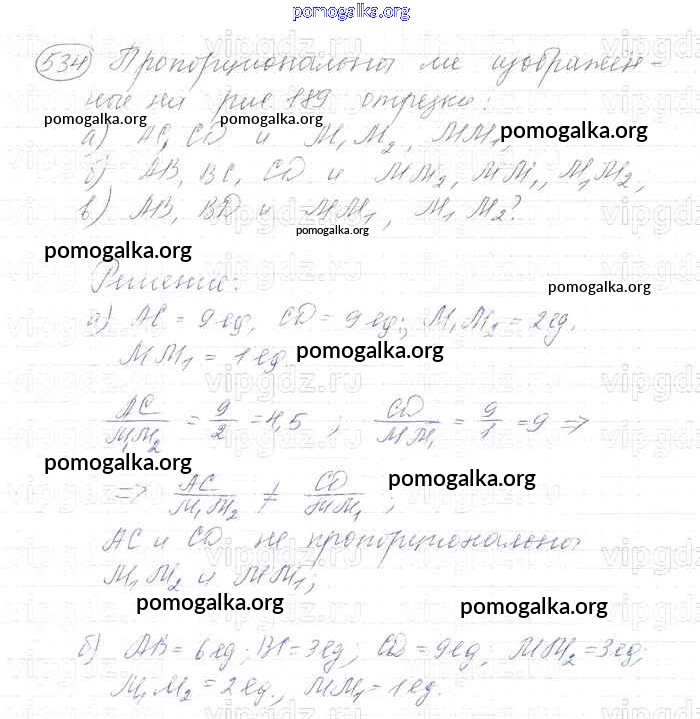 pomogalka.org
534) Пропорциональны ли изображён-
ные на рис 189 отрезки:
pomogalka.org pomogalka.org
а) AC, CD и M₁M₂, MM₁; pomogalka.org
б) AB, BC, CD и MM₂, MM₁, M₁M₂;
в) AB, BD и MM₁, M₁M₂?
pomogalka.org
pomogalka.org
Решение: pomogalka.org
а) AC = 9 ед, CD = 9 ед; M₁M₂ = 2 ед.
MM₁ = 1 ед. pomogalka.org
vipgdz.ru
AC/M₁M₂ = 9/2 = 4,5 ; CD/MM₁ = 9/1 = 9 =>
pomogalka.org
=> AC/M₁M₂ ≠ CD/MM₁ ; pomogalka.org
AC и CD не пропорциональны
M₁M₂ и MM₁;
pomogalka.org pomogalka.org
б) AB = 6 ед; BC = 3 ед; CD = 9 ед; MM₂ = 3 ед;
M₁M₂ = 2 ед., MM₁ = 1 ед.